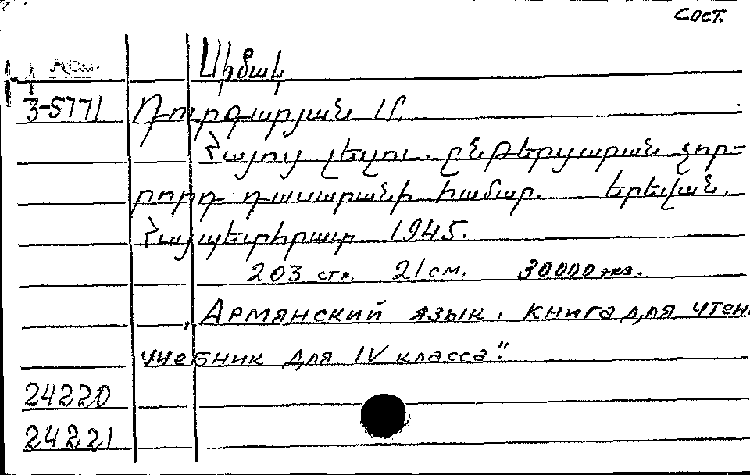 Сост.
Арм.
Սիմակ
3-5771 Դուրգարյան Ս.
Հայոց լեզու. ընթերցարան չոր-
րորդ դասարանի համար. Երեվան,
Հայպետհրատ 1945.
203 стр. 21 см. 30000 экз.
"Армянский язык. Книга для чтен.
учебник для IV класса".
24220
24221